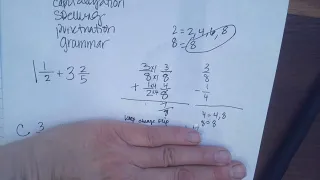 capitalization
spelling
punctuation
grammar
2 = 2, 4, 6, 8
8 = 8
1 1/2 + 3 2/5
3/8 x1/x1 3/8
+ 1/2 x4/x4 4/8
7/8
3/8
- 1/4
4 = 4, 8
8 = 8
keep change flip
C. 3